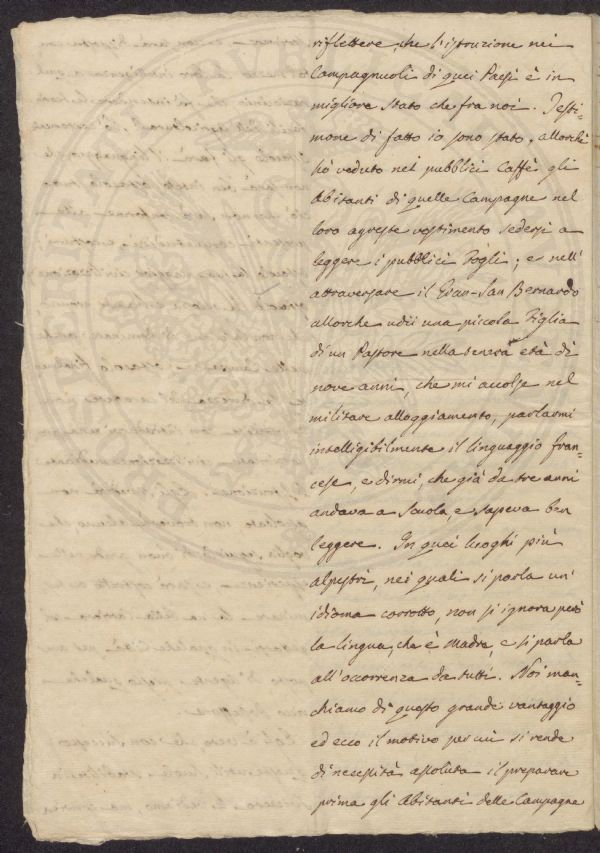 riflettere, che l'istruzione nei
Campagnuoli di quei Paesi è in
migliore stato che fra noi. Testi=
mone di fatto io sono stato, allorchè
hò veduto nei pubblici Caffè gli
Abitanti di quelle Campagne nel
loro agreste vestimento sedersi a
leggere i pubblici Fogli; e nell'
attraversare il Gran-San Bernardo
allorche udii una piccola Figlia
di un Pastore nella tenera età di
nove anni, che mi accolse nel
militare alloggiamento, parlarmi
intelligibilmente il linguaggio fran=
cese, e dirmi, che già da tre anni
andava a Scuola, e sapeva ben
leggere. In quei luoghi più
alpestri, nei quali si parla un'
idioma corrotto, non si ignora però
la lingua, che è Madre, e si parla
all'occorrenza da tutti. Noi man=
chiamo di questo grande vantaggio
ed ecco il motivo per cui si rende
di necessità assoluta il preparare
prima gli Abitanti delle Campagne